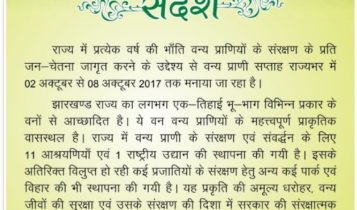 संदेश
राज्य में प्रत्येक वर्ष की भाँति वन्य प्राणियों के संरक्षण के प्रति
जन–चेतना जागृत करने के उद्देश्य से वन्य प्राणी सप्ताह राज्यभर में
02 अक्टूबर से 08 अक्टूबर 2017 तक मनाया जा रहा है।
झारखण्ड राज्य का लगभग एक–तिहाई भू–भाग विभिन्न प्रकार के
वनों से आच्छादित है। ये वन वन्य प्राणियों के महत्त्वपूर्ण प्राकृतिक
वासस्थल है। राज्य में वन्य प्राणी के संरक्षण एवं संवर्द्धन के लिए
11 आश्रयणियाँ एवं 1 राष्ट्रीय उद्यान की स्थापना की गयी है। इसके
अतिरिक्त विलुप्त हो रही कई प्रजातियों के संरक्षण हेतु अन्य कई पार्क एवं
विहार की भी स्थापना की गयी है। यह प्रकृति की अमूल्य धरोहर, वन्य
जीवों की सुरक्षा एवं उसके संरक्षण की दिशा में सरकार की संरक्षात्मक